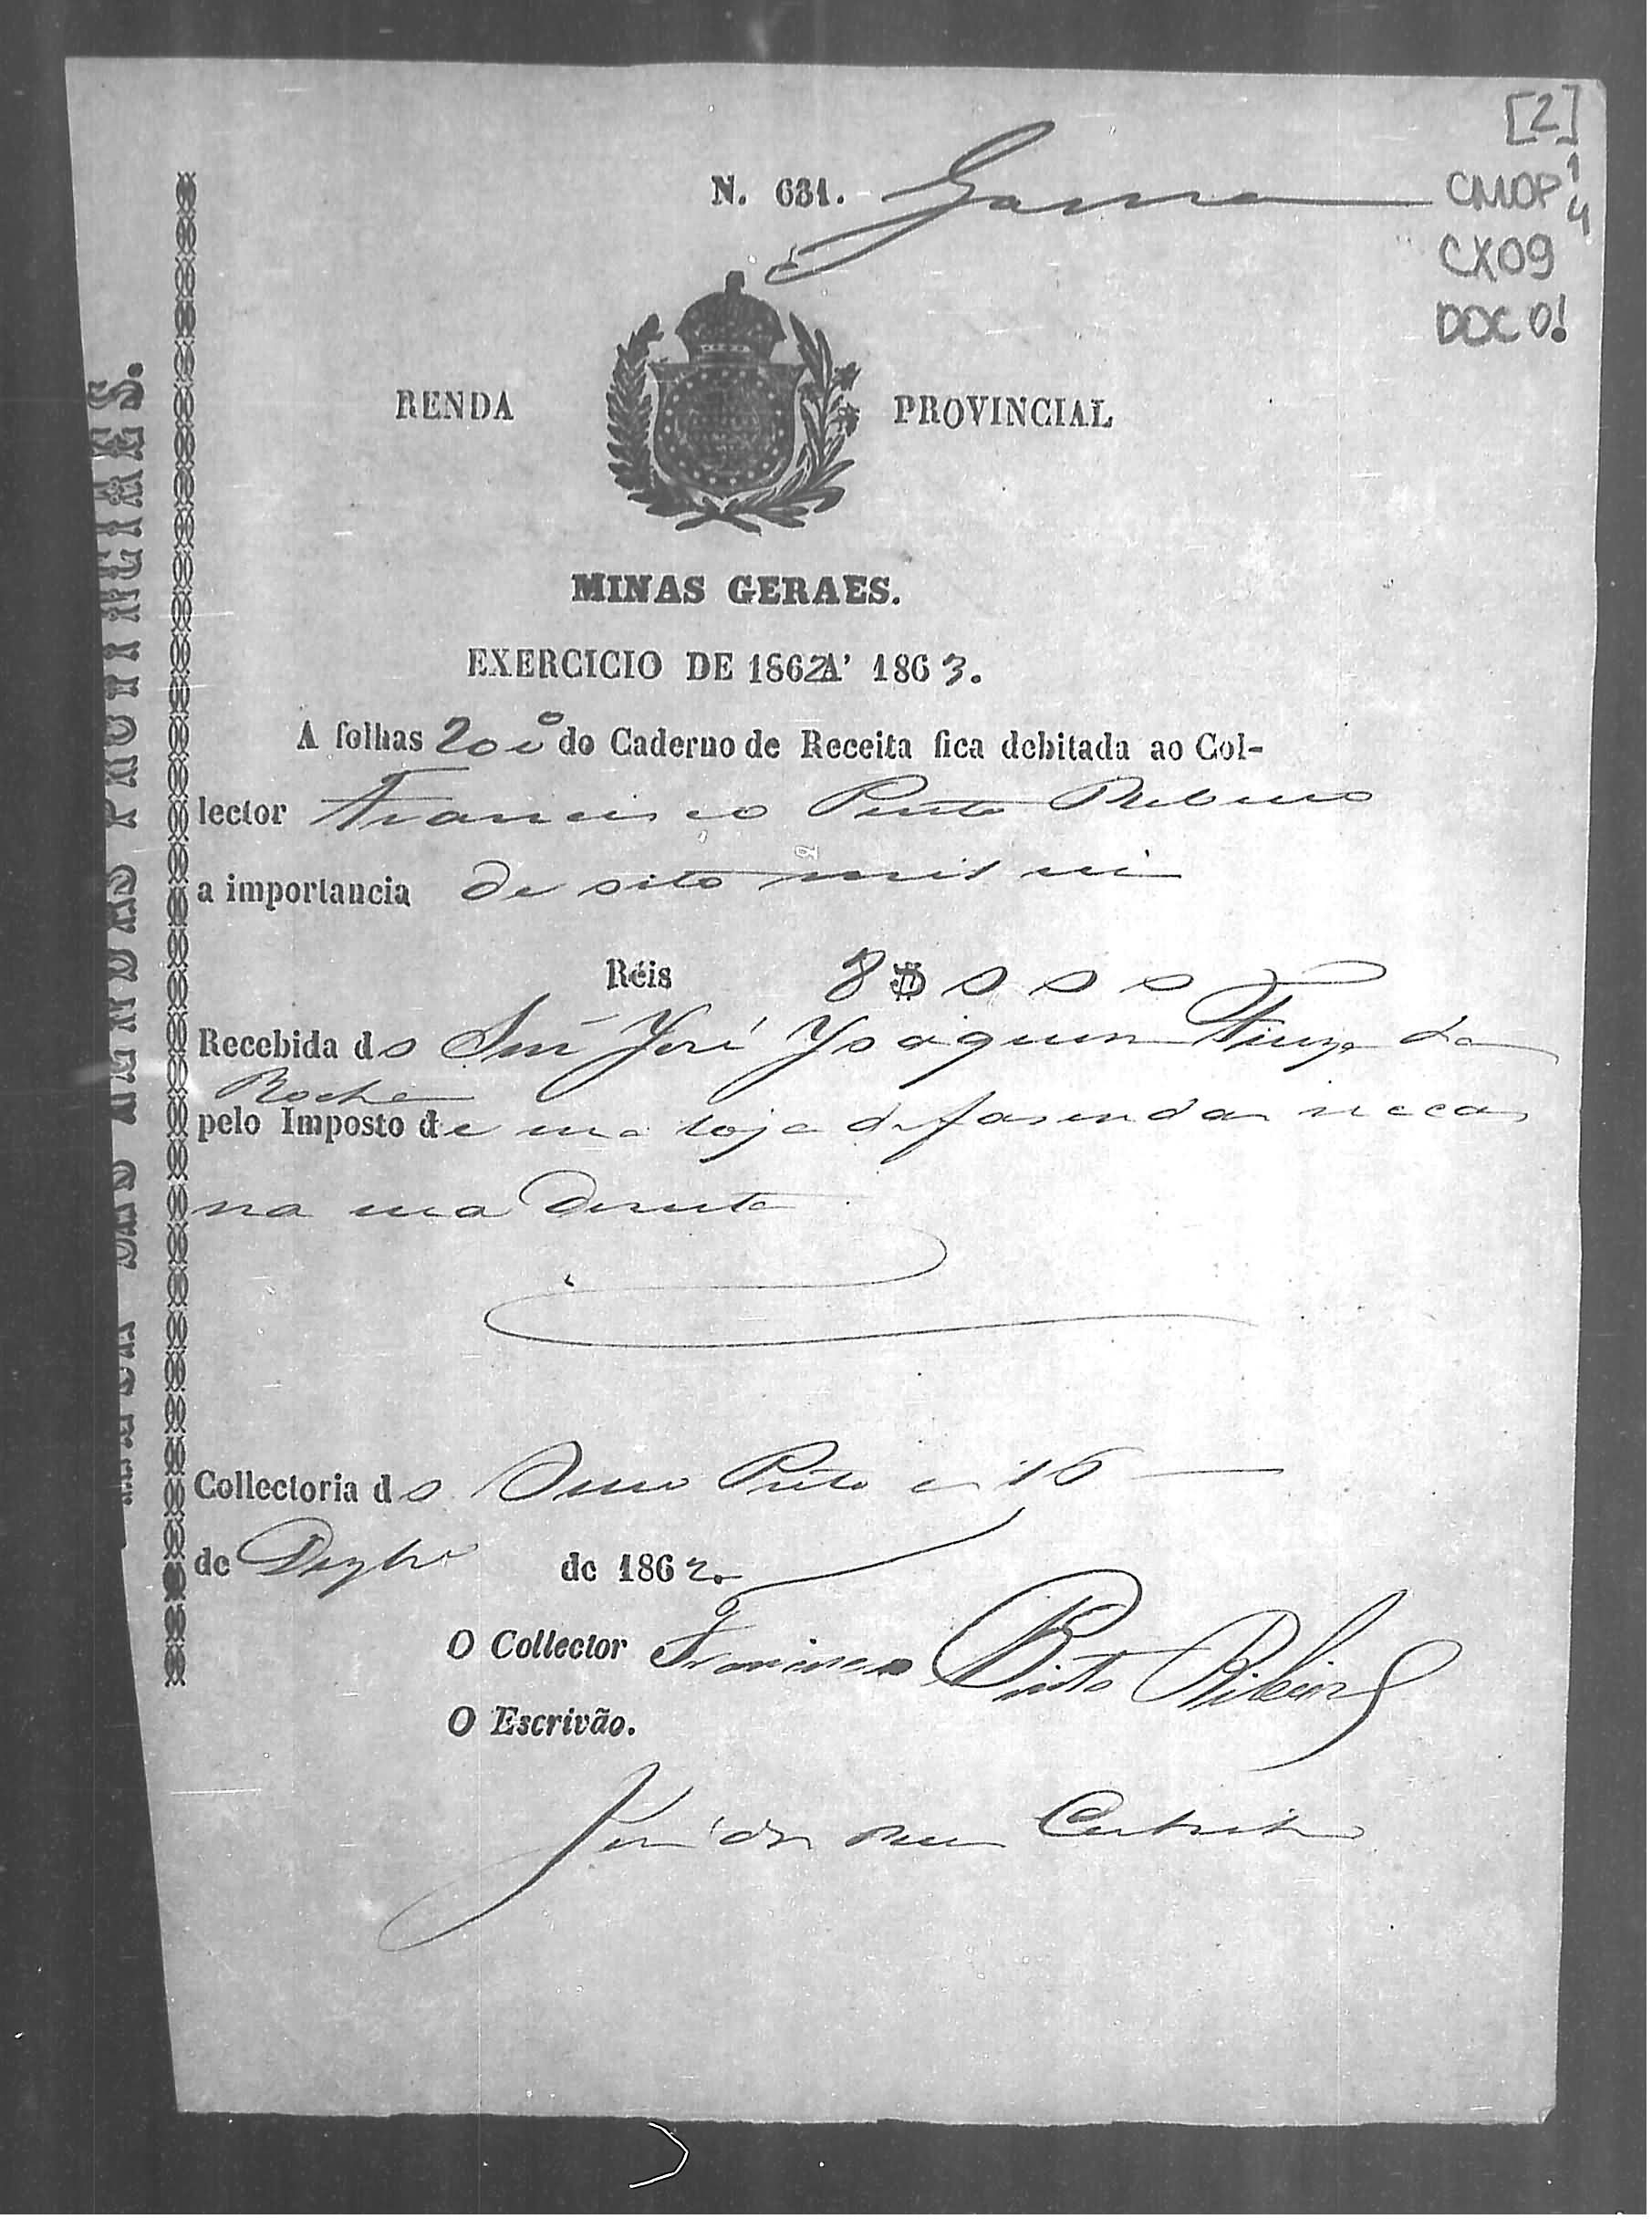 [2]
N. 631. Gama
CMOP
CX09
DOC 01
RENDA PROVINCIAL
MINAS GERAES.
EXERCICIO DE 1862 A' 1863.
A folhas do Caderno de Receita fica debitada ao Col-
lector Francisco Pinto Ribeiro
a importancia de oito mil rei
Réis 8$000
Recebida do Snr José Joaquim Fiuza da
Rocha
pelo Imposto de sua loja de fasendas seccas
na rua Dereita
Collectoria do Ouro Preto em 16
de Dezbro de 1862.
O Collector Francisco Pinto Ribeiro
O Escrivão.
José